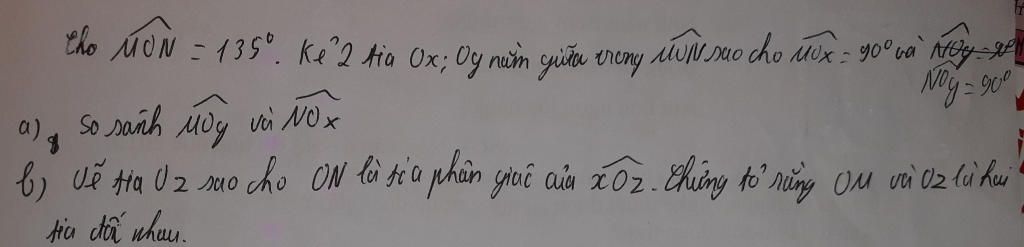 Cho MON = 135°. Kẻ 2 tia Ox; Oy nằm giữa trong MON sao cho MOx = 90° và NOy = 90°
NOy = 90°
a) So sánh MOy và NOx
b) Vẽ tia Oz sao cho ON là tia phân giác của xOz. Chứng tỏ rằng OM và Oz là hai
tia đối nhau.